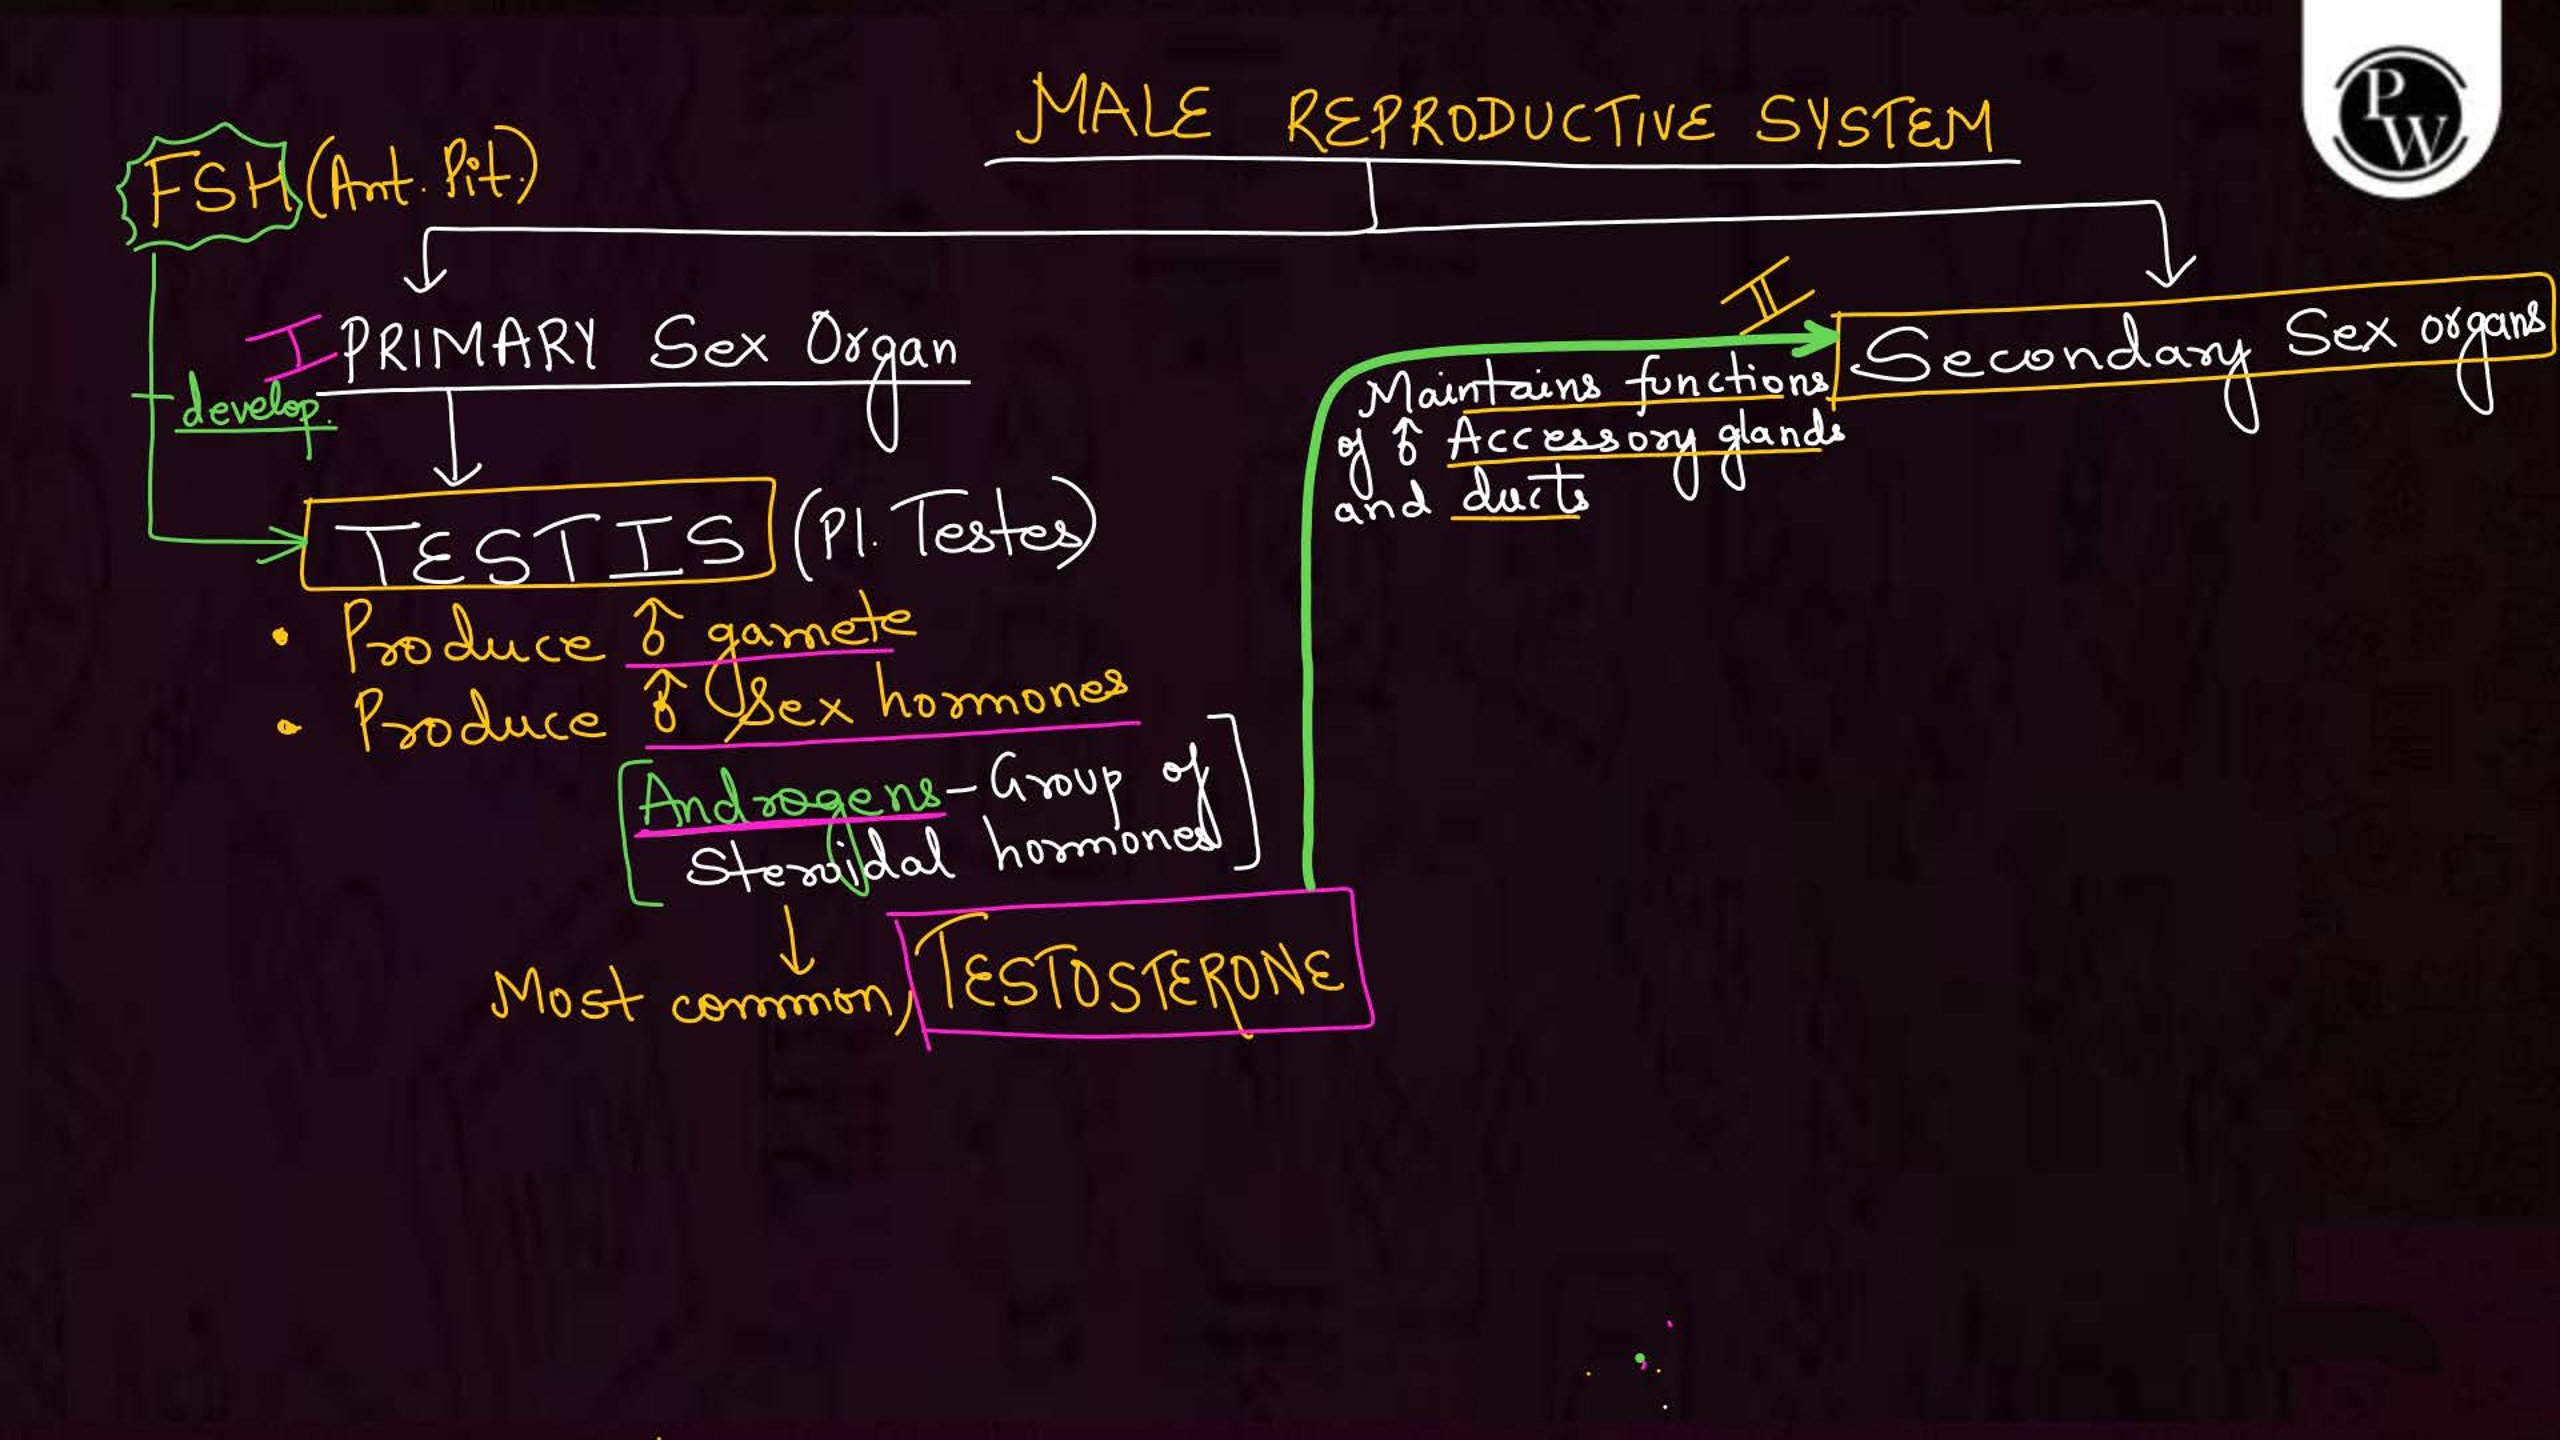 MALE REPRODUCTIVE SYSTEM
PW
FSH (Ant. Pit.)
I PRIMARY Sex Organ
develop.
TESTIS (Pl. Testes)
• Produce ♂ gamete
• Produce ♂ Sex hormones
[Androgens - Group of
Steroidal hormones]
Most common, TESTOSTERONE
II
Secondary Sex organs
Maintains functions
of ♂ Accessory glands
and ducts